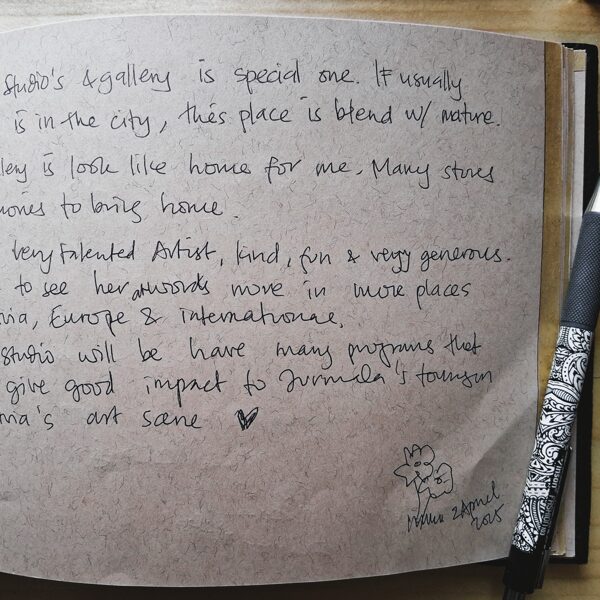 Studio's & gallery is special one. If usually
is in the city, thés place is blend w/ nature.
llery is look like home for me. Many stores
mories to bring home.
very talented Artist, kind, fun & very generous.
to see her artwords more in more places
nia, Europe & internationae.
studio will be have many programs that
give good impact to Jurmala's tourism
nia's art scene ♥
2 April
2025